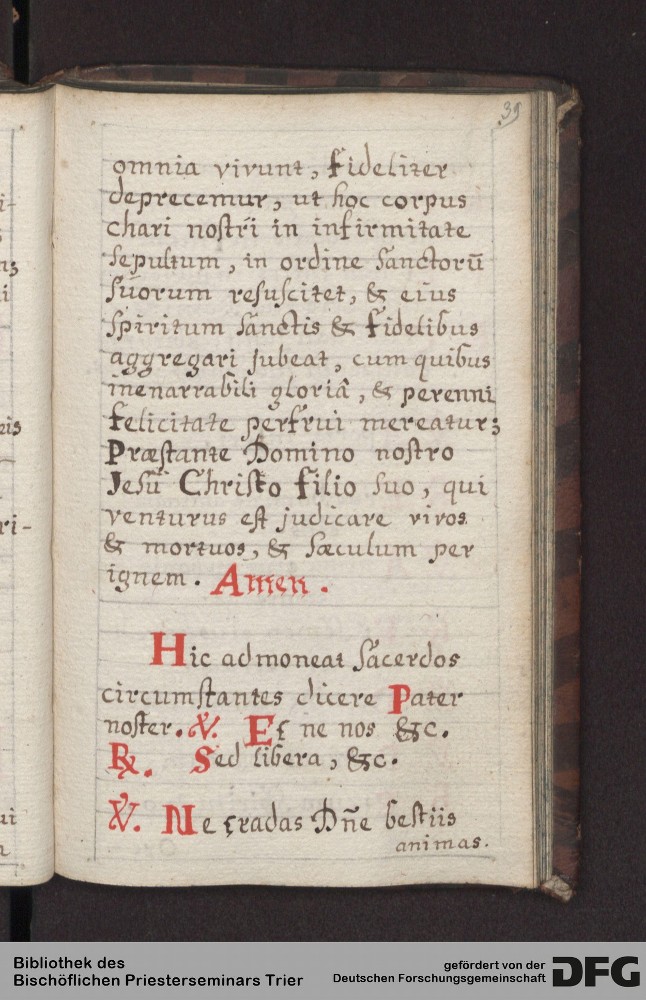 39
omnia vivunt, fideliter
deprecemur, ut hoc corpus
chari nostri in infirmitate
sepultum, in ordine Sanctorū
suorum resuscitet, & eius
spiritum sanctis & fidelibus
aggregari jubeat, cum quibus
inenarrabili gloriâ, & perenni
felicitate perfrui mereatur;
Præstante Domino nostro
Jesu Christo filio suo, qui
venturus est judicare vivos
& mortuos, & sæculum per
ignem. Amen.
Hic admoneat sacerdos
circumstantes dicere Pater
noster. ℣. Et ne nos &c.
℟. Sed libera, &c.
℣. Ne tradas Dñe bestiis
animas.
Bibliothek des
Bischöflichen Priesterseminars Trier
gefördert von der
Deutschen Forschungsgemeinschaft
DFG